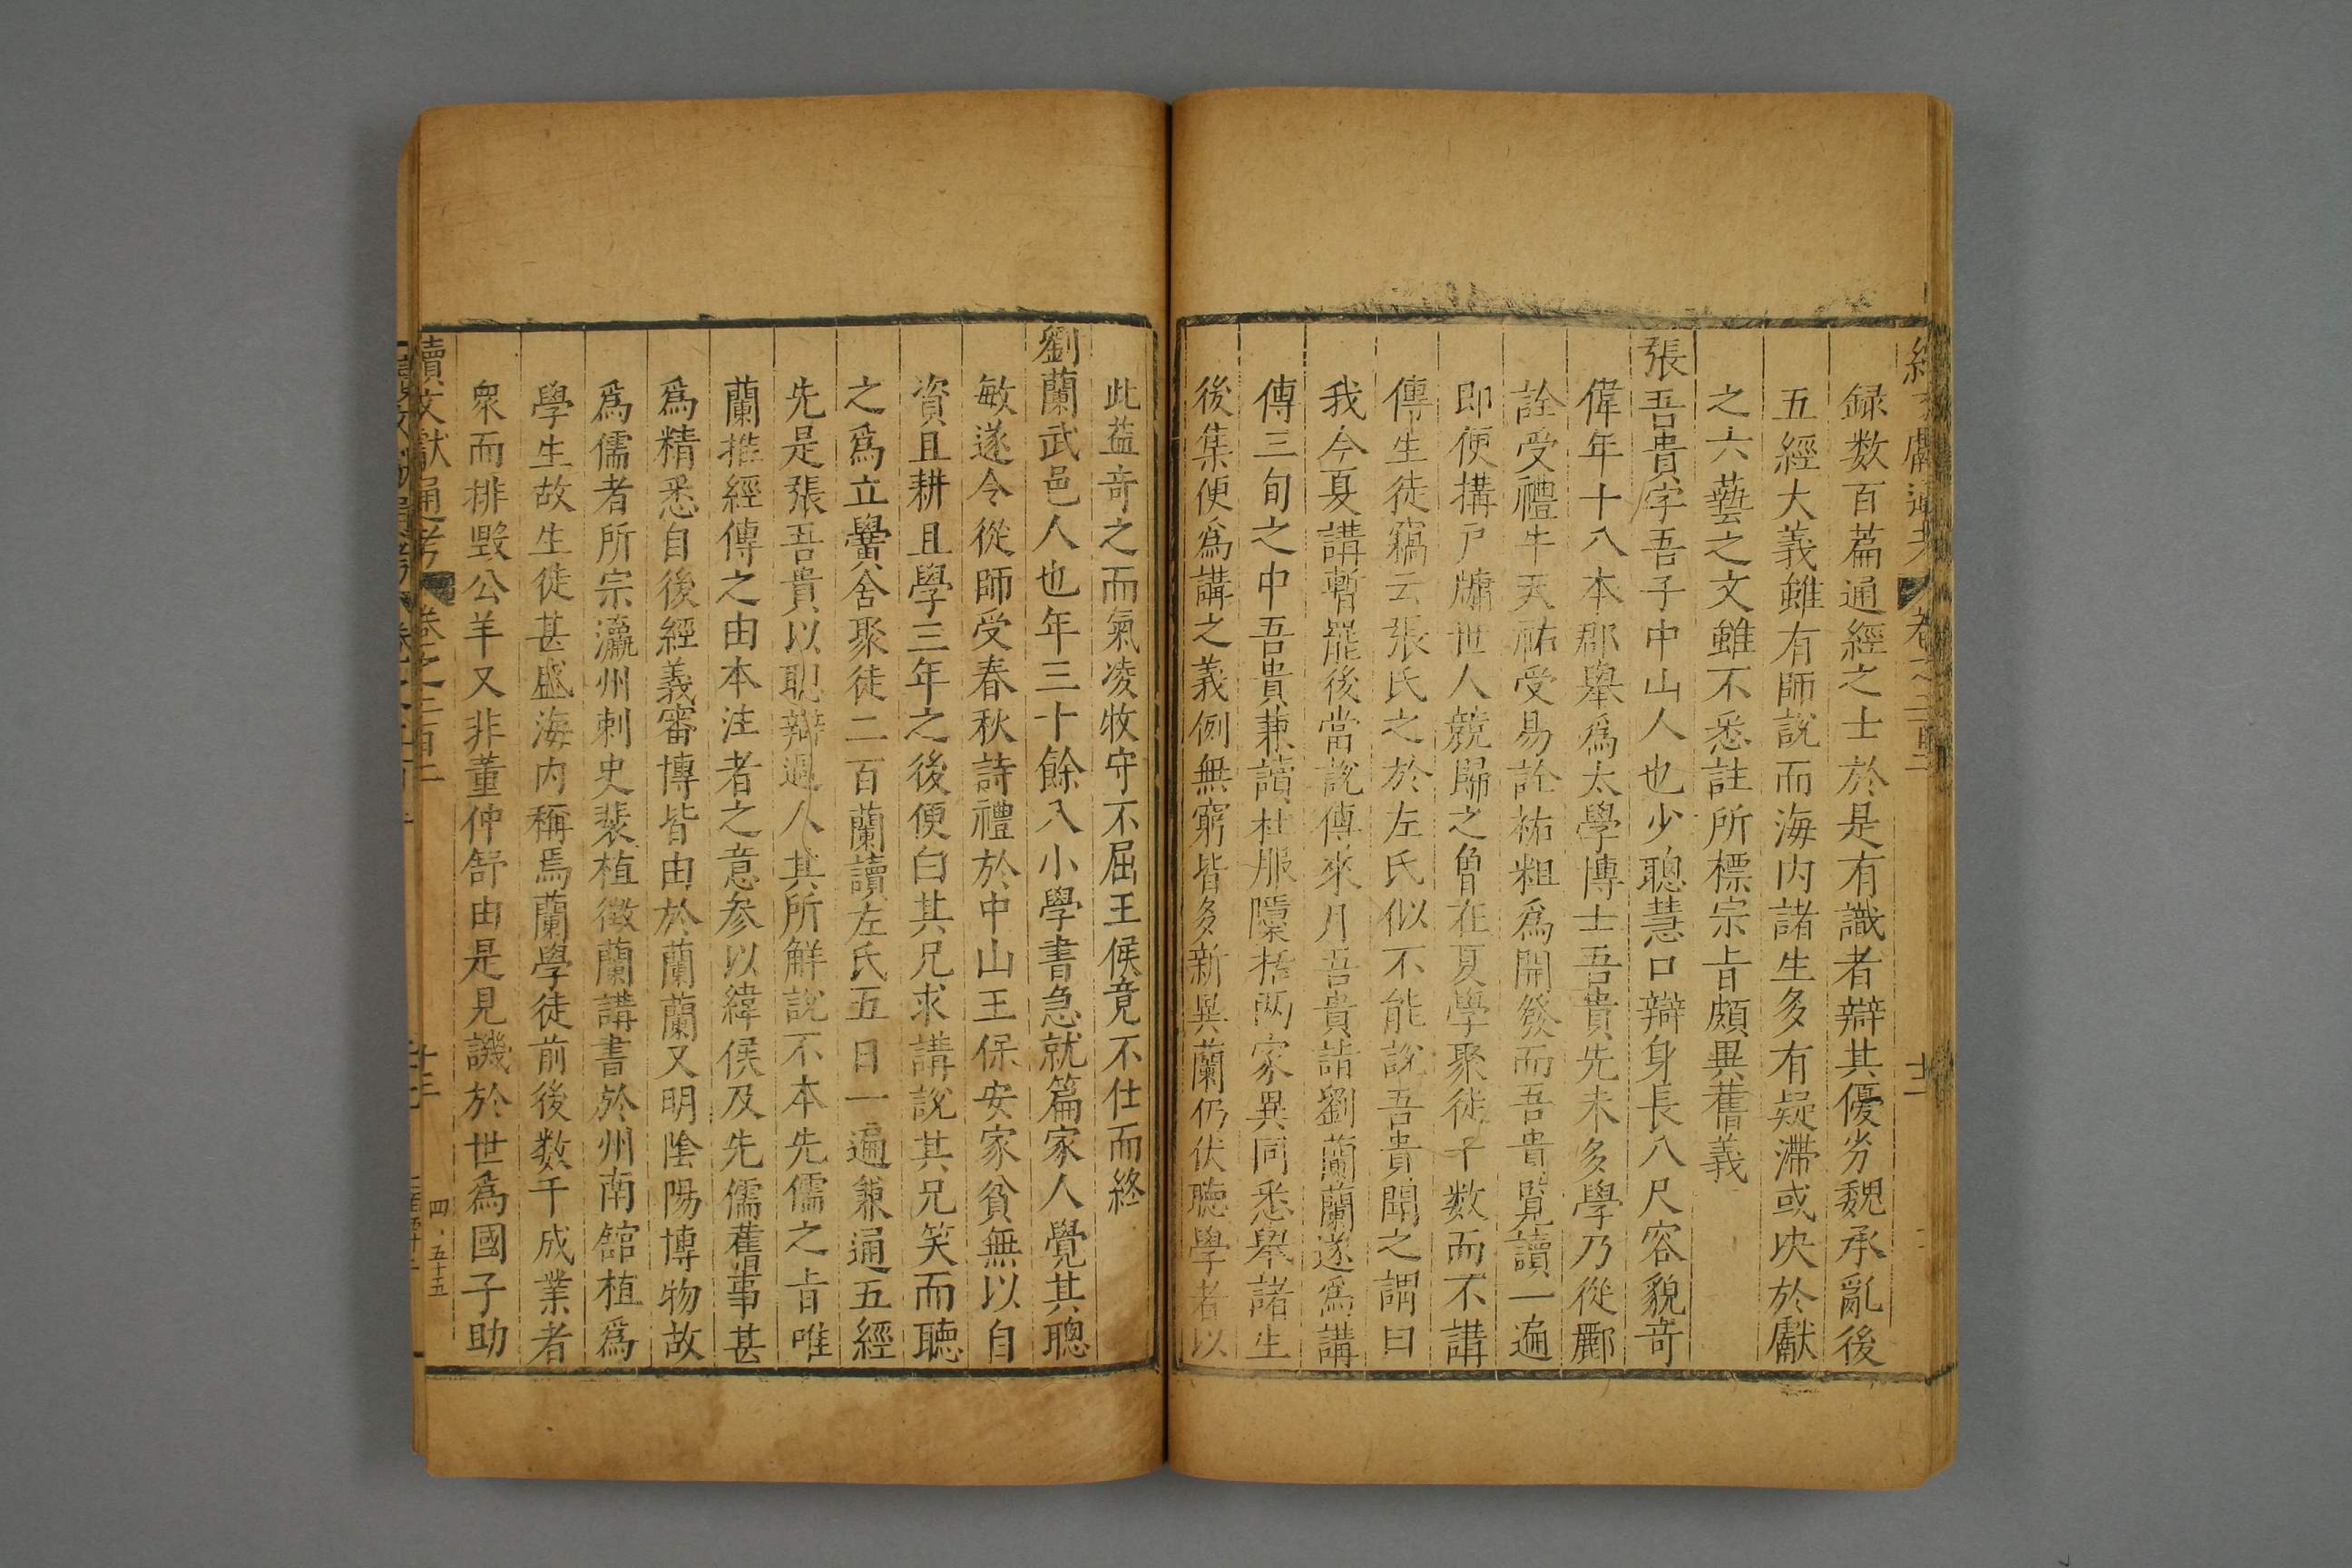 録数百篇通經之士於是有識者辯其優劣魏承亂後
五經大義雖有師說而海内諸生多有疑滯或决於獻
之六藝之文雖不悉註所標宗旨頗異舊義
張吾貴字吾子中山人也少聰慧口辯身長八尺容貌竒
偉年十八本郡舉爲太學博士吾貴先未多學乃從酈
詮受禮牛天祐受易詮祐粗爲開發而吾貴覽讀一遍
即便搆戸牖世人競歸之曾在夏學聚徒千数而不講
傳生徒竊云張氏之於左氏似不能說吾貴聞之謂曰
我今夏講暫罷後當說傳來月吾貴詣劉蘭蘭遂爲講
傳三旬之中吾貴兼讀杜服隱括两家異同悉舉諸生
後集便爲講之義例無窮皆多新異蘭仍伏聽學者以
此益竒之而氣凌牧守不屈王侯竟不仕而終
劉蘭武邑人也年三十餘入小學書急就篇家人覺其聰
敏遂令從師受春秋詩禮於中山王保安家貧無以自
資且耕且學三年之後便白其兄求講說其兄笑而聽
之爲立黌舍聚徒二百蘭讀左氏五日一遍兼通五經
先是張吾貴以聰辯過人其所解說不本先儒之旨唯
蘭推經傳之由本注者之意参以緯候及先儒舊事甚
爲精悉自後經義審博皆由於蘭蘭又明陰陽博物故
爲儒者所宗瀛州刺史裴植徵蘭講書於州南館植爲
學生故生徒甚盛海内稱焉蘭學徒前後数千成業者
衆而排毀公羊又非董仲舒由是見譏於世爲國子助
續文獻通考 卷之二百二 十三 四 五十五